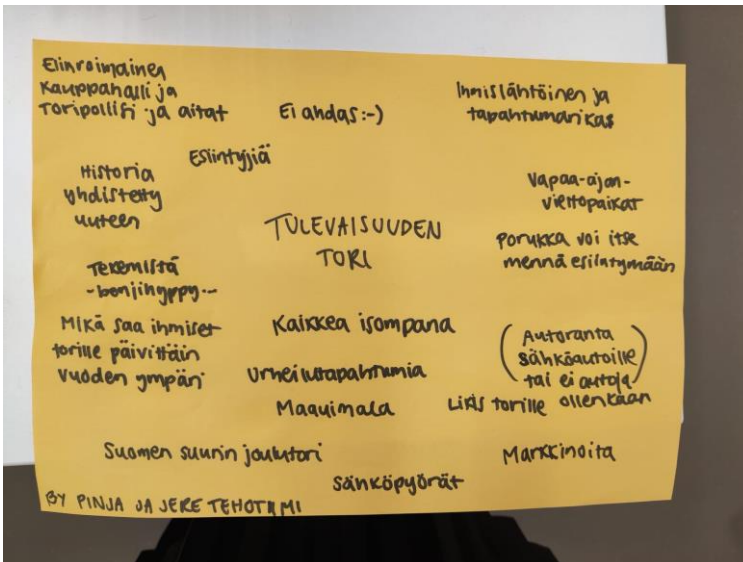 Elinvoimainen
Kauppahalli ja
Toripolliisi ja aitat
Ei ahdas :-)
Ihmislähtöinen ja
tapahtumarikas
Esiintyjiä
Historia
yhdistetty
uuteen
Vapaa-ajan-
viettopaikat
TULEVAISUUDEN
TORI
Porukka voi itse
mennä esiintymään
Tekemistä
-benjihyppy--
Mikä saa ihmiset
torille päivittäin
vuoden ympäri
Kaikkea isompana
Urheilutapahtumia
Maauimala
(Autoranta
sähköautoille
tai ei autoja)
Liki torille ollenkaan
Suomen suurin joulutori
Markkinoita
Sähköpyörät
BY PINJA JA JERE TEHOTIIMI